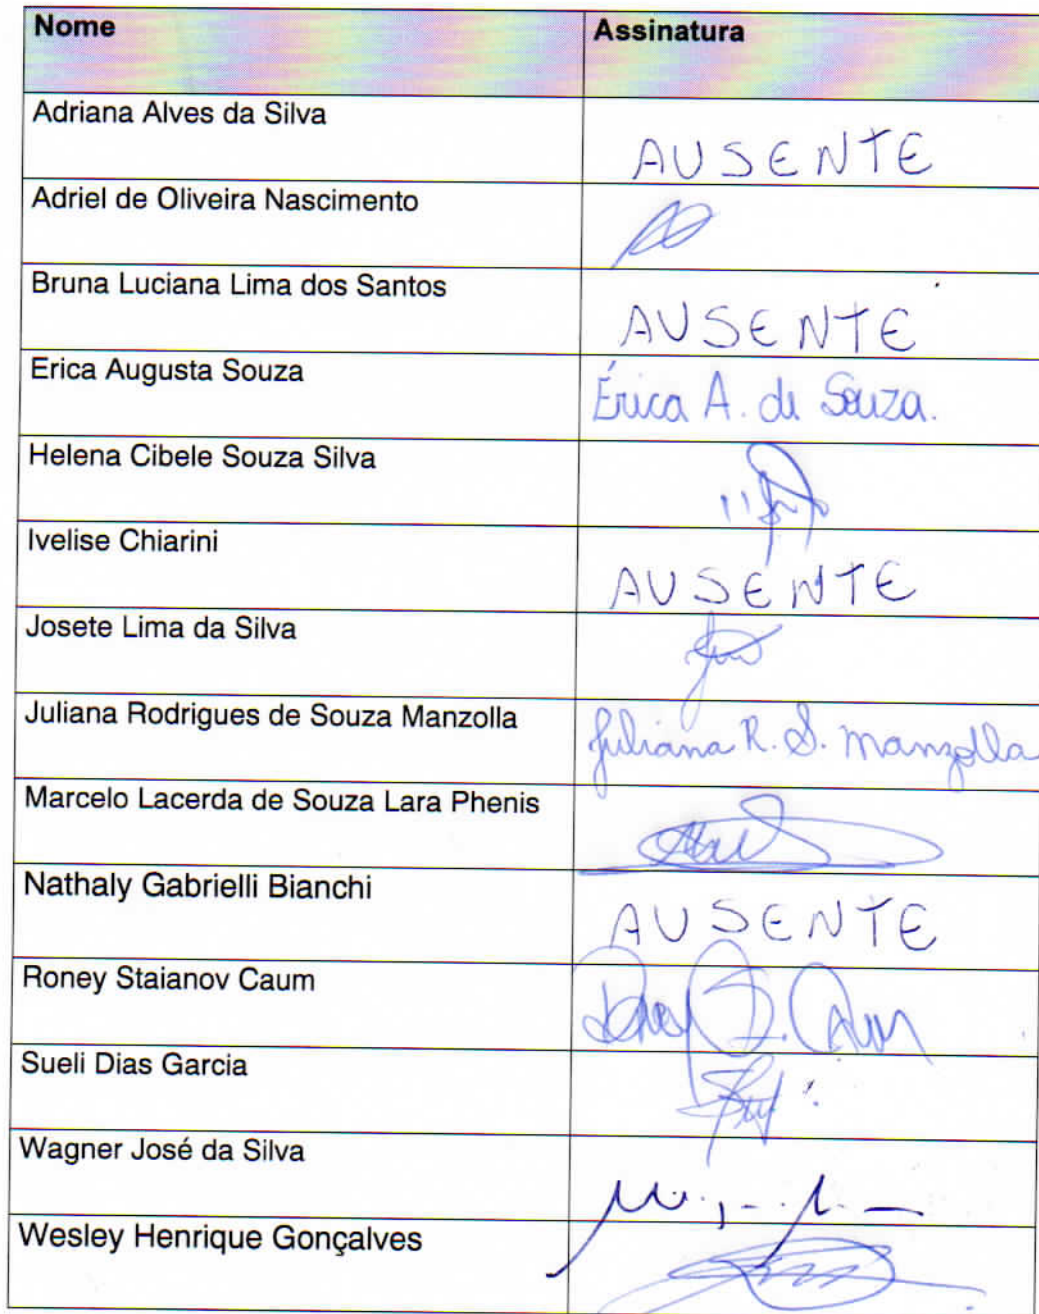 Nome Assinatura
Adriana Alves da Silva AUSENTE
Adriel de Oliveira Nascimento
Bruna Luciana Lima dos Santos AUSENTE
Erica Augusta Souza Érica A. de Souza.
Helena Cibele Souza Silva
Ivelise Chiarini AUSENTE
Josete Lima da Silva
Juliana Rodrigues de Souza Manzolla Juliana R. S. Manzolla
Marcelo Lacerda de Souza Lara Phenis
Nathaly Gabrielli Bianchi AUSENTE
Roney Staianov Caum
Sueli Dias Garcia
Wagner José da Silva
Wesley Henrique Gonçalves